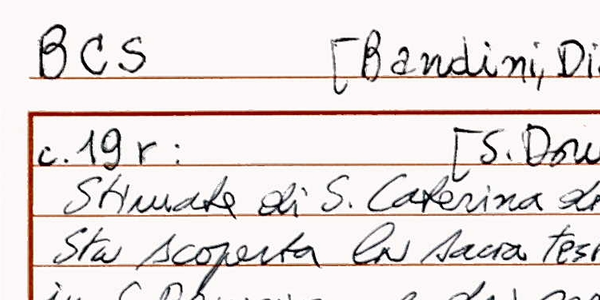 BCS [Bandini, Di
c. 19 r: [S. Dom
Stimate di S. Caterina d
Sta scoperta la sacra tes
in S. Domenico e dei